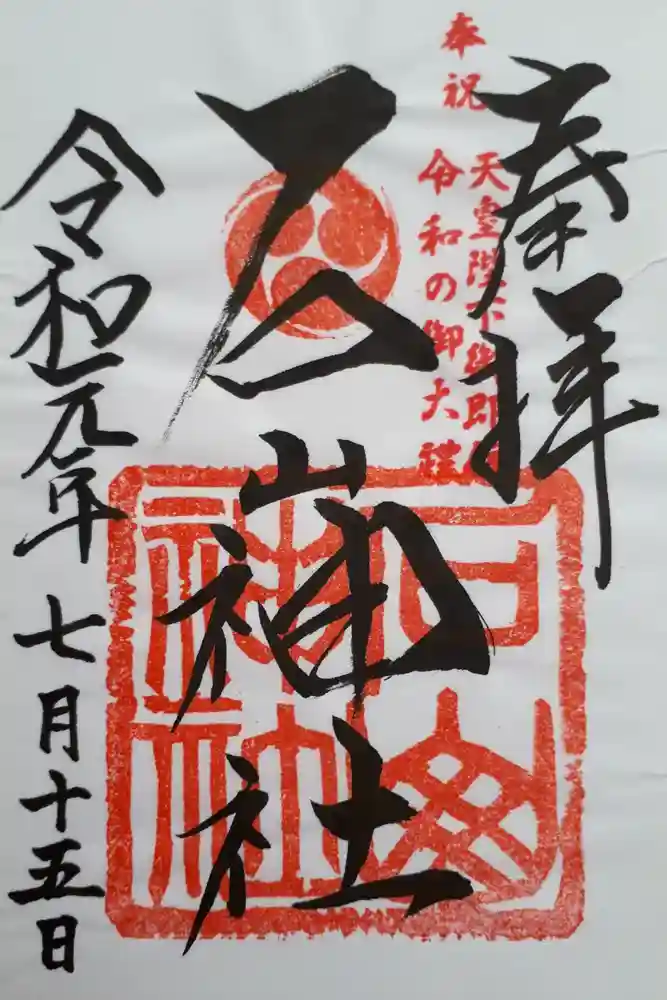 奉拝
奉祝
天皇陛下御即位
令和の御大禮
石山神社
令和元年 七月十五日